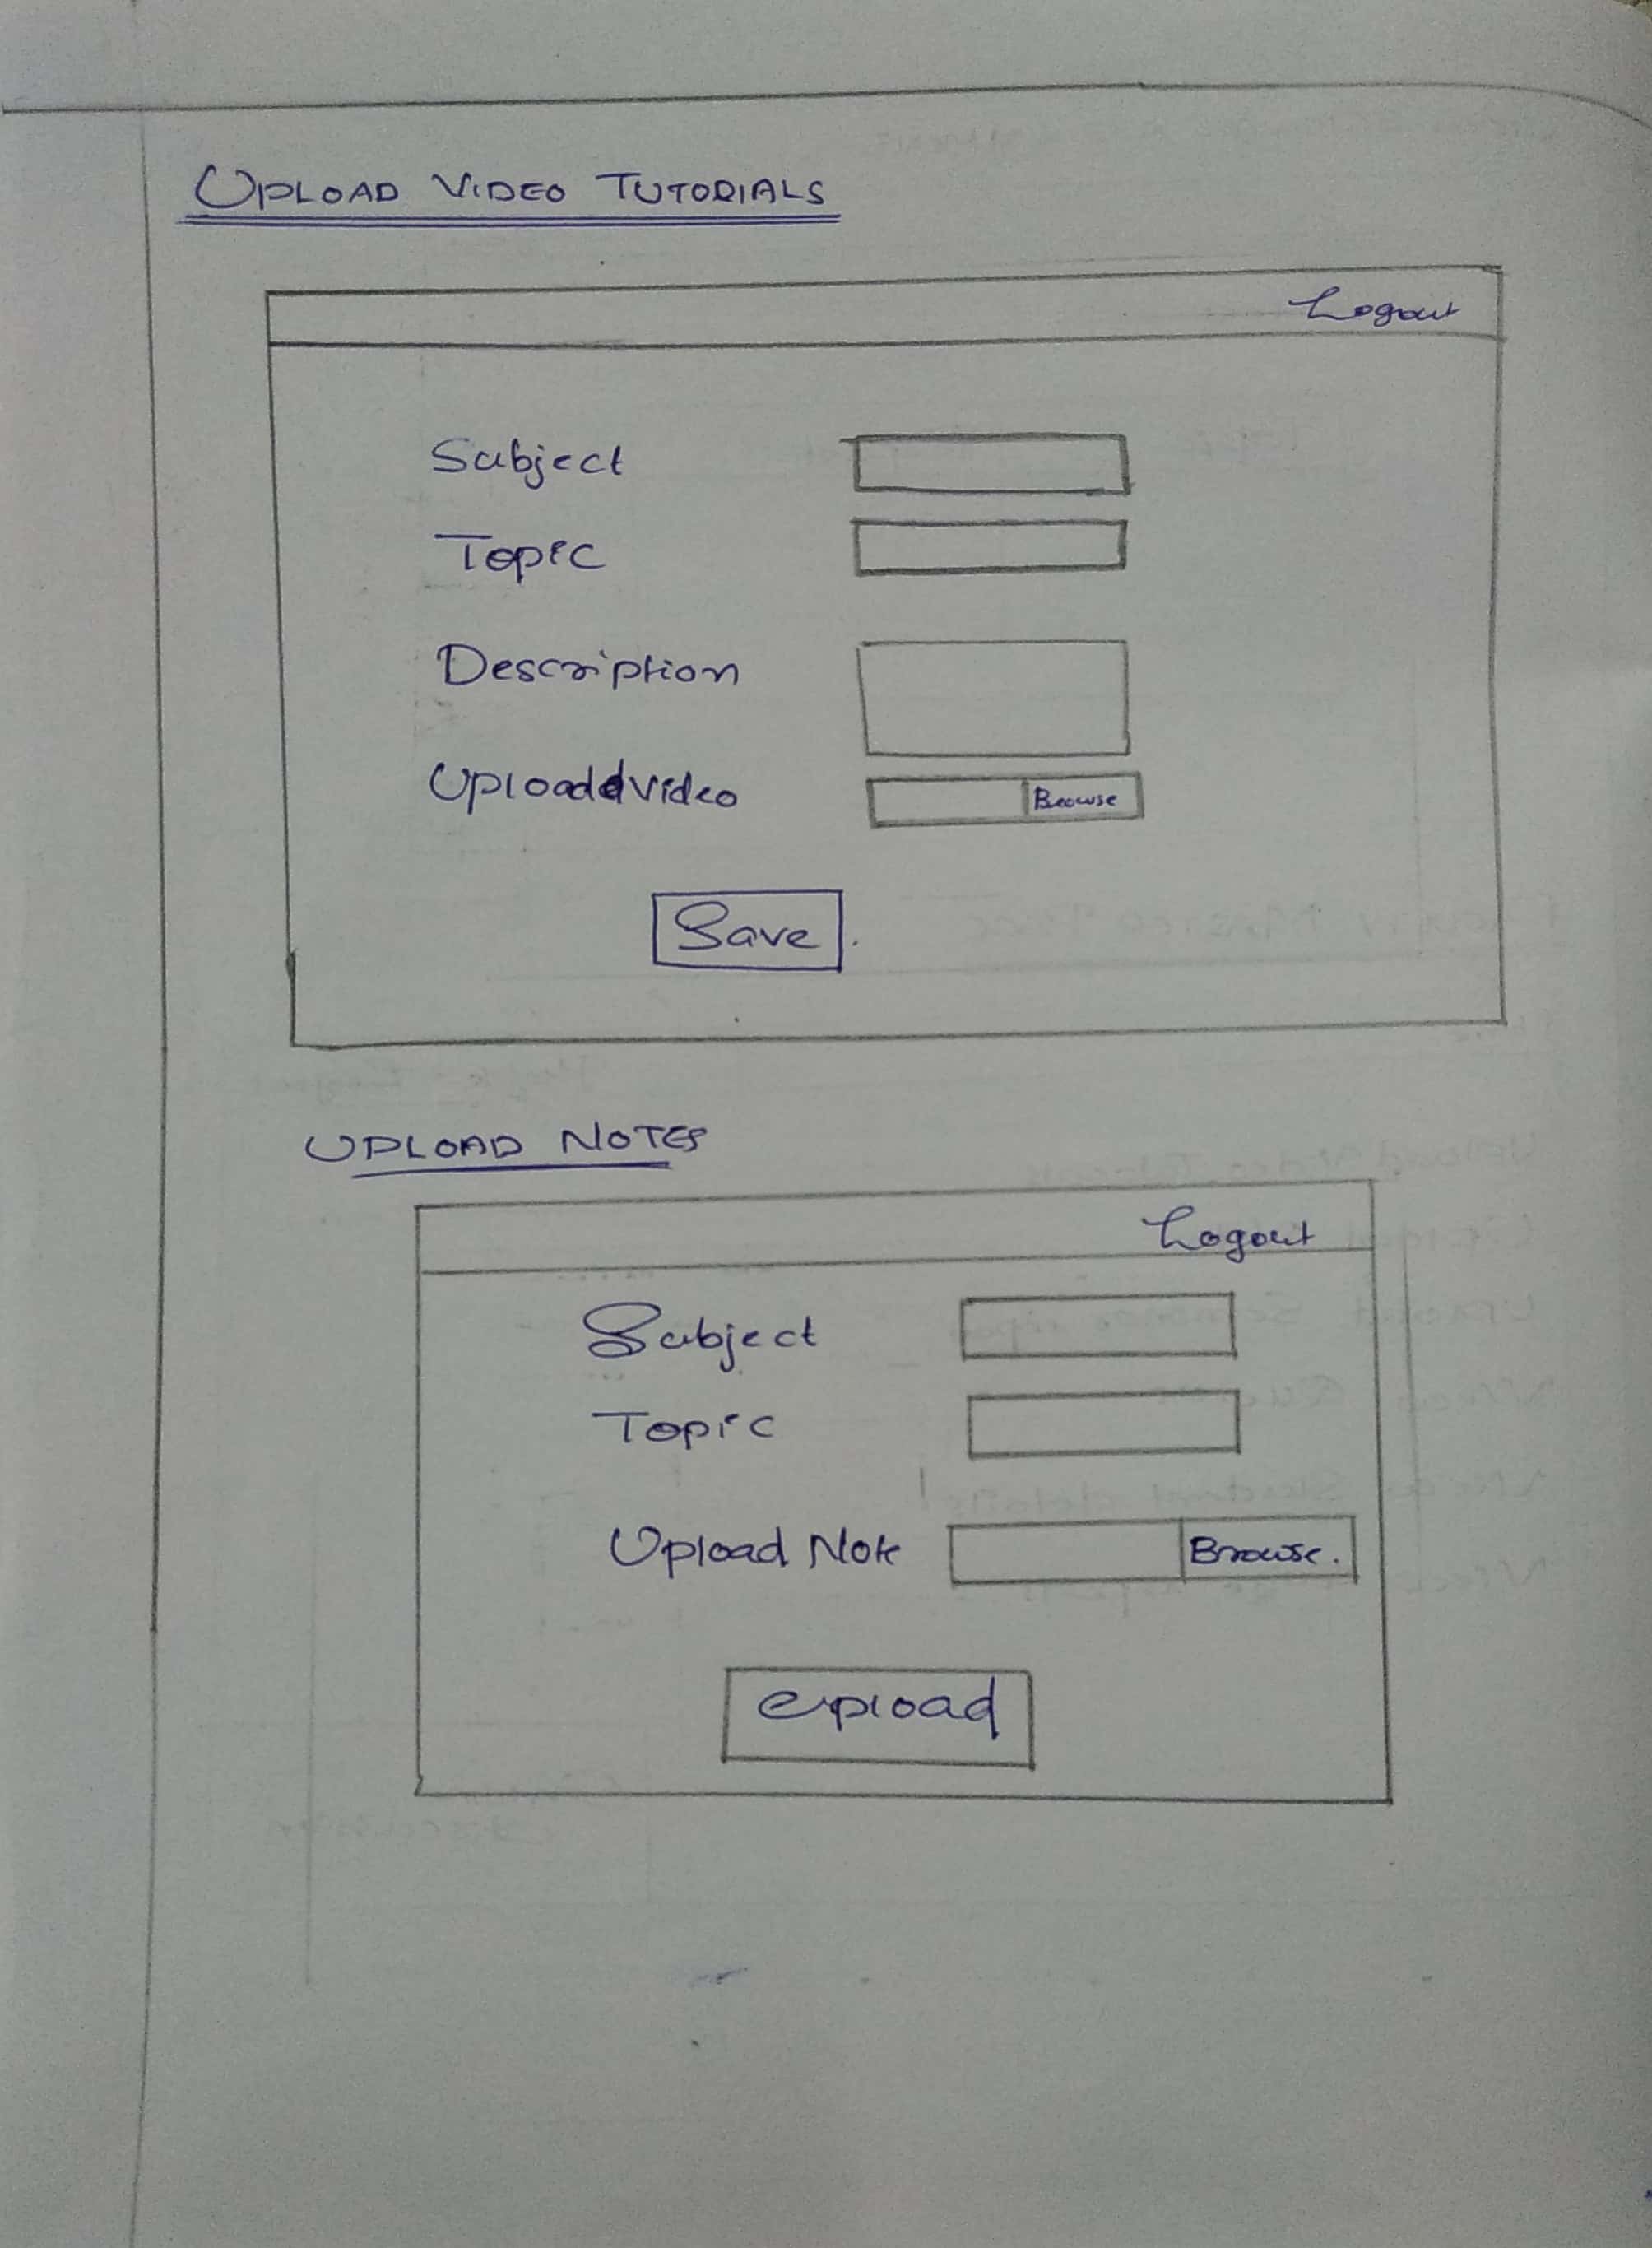 UPLOAD VIDEO TUTORIALS
Logout
Subject
Topic
Description
Upload Video Browse
Save
UPLOAD NOTES
Logout
Subject
Topic
Upload Note Browse.
upload